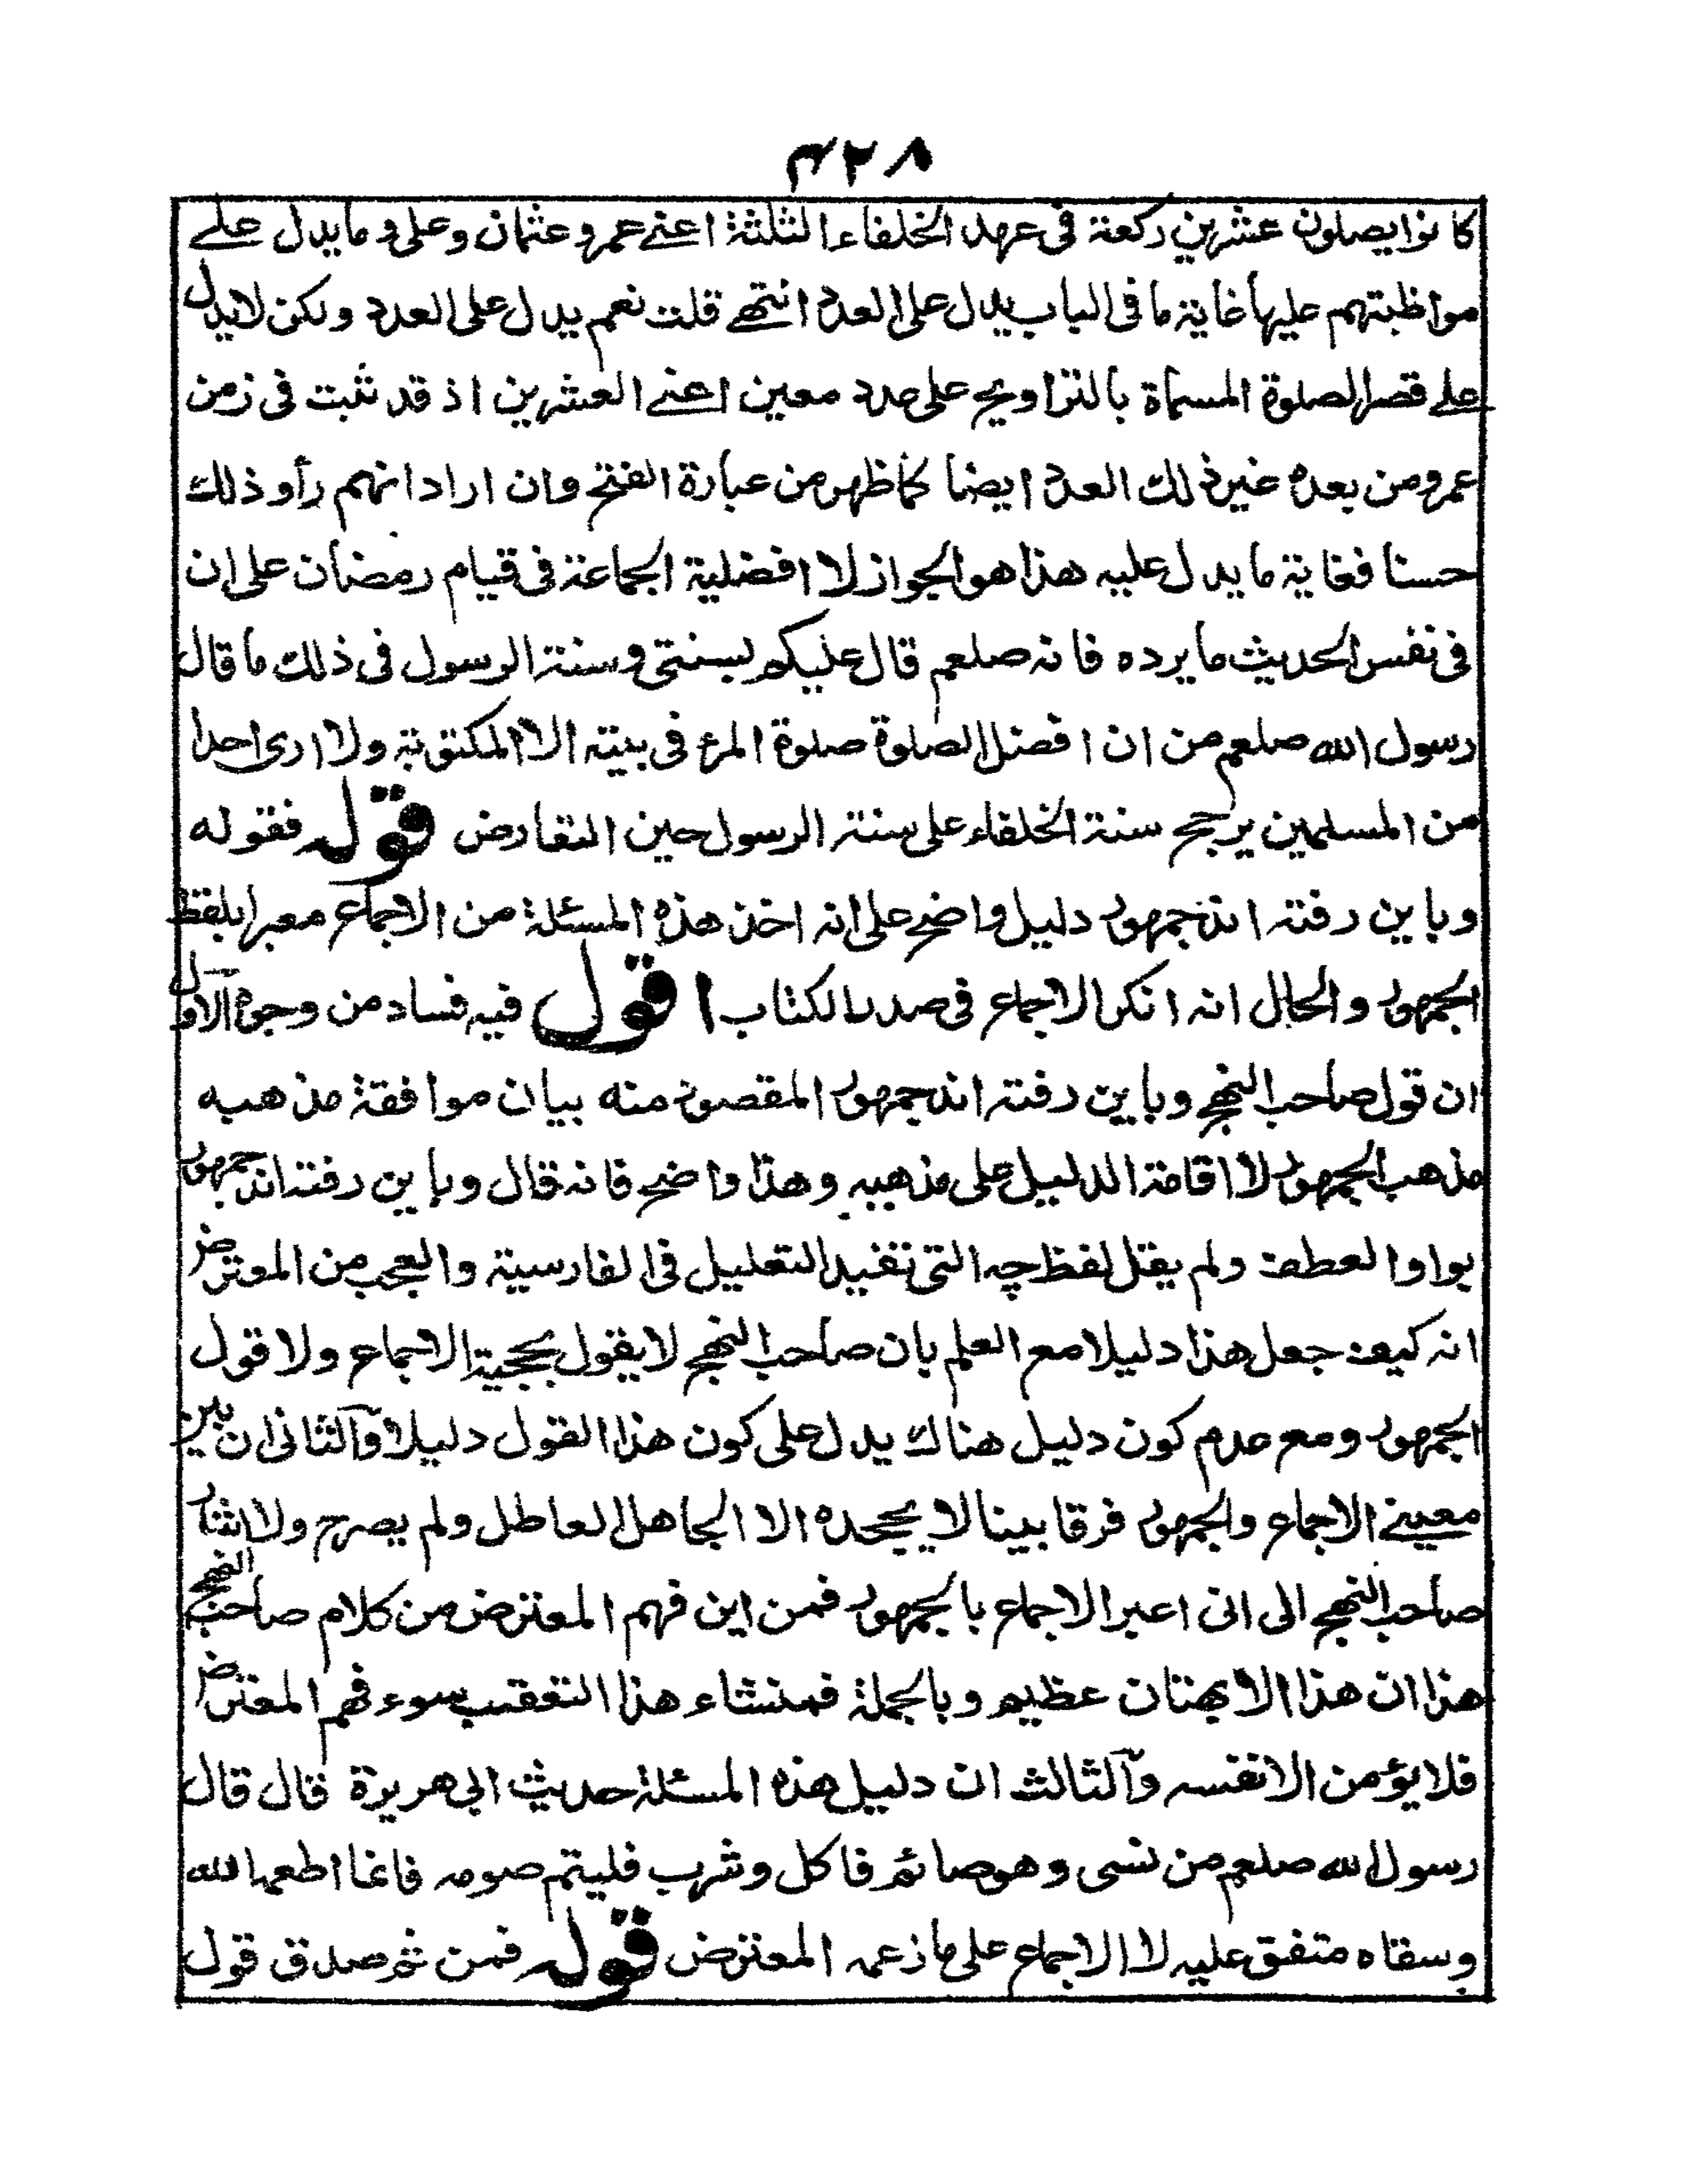 ۴۲۸
كانوا يصلون عشرين ركعة فى عهد الخلفاء الثلثة اعنے عمر و عثمان وعلى و ما يدل علے
مواظبتهم عليها غاية ما فى الباب يدل على العدد انتهے قلت نعم يدل على العدد ولكن لا يدل
علے قصر الصلوة المسماة بالتراويح على عدد معين اعنے العشرين اذ قد ثبت فى زمن
عمر ومن بعده غير ذلك العدد ايضا كما ظهر من عبارة الفتح وان ارادانهم رأو ذلك
حسنا فغاية ما يدل عليه هذا هو الجواز لا افضلية الجماعة فى قيام رمضان على ان
فى نفس الحديث ما يرده فانه صلعم قال عليكم بسنتى وسنة الرسول فى ذلك ما قال
رسول الله صلعم من ان افضل الصلوة صلوة المرء فى بيته الا المكتوبة ولا ارى احدا
من المسلمين يرجح سنة الخلفاء على سنة الرسول حين التعارض قوله فقوله
وباين رفته اند جمهور دليل واضح على انه اخذ هذه المسئلة من الاجماع معبرا بلفظ
الجمهور والحال انه انكر الاجماع فى صدر الكتاب اقول فيه فساد من وجوه الاول
ان قول صاحب النهج وباين رفته اند جمهور المقصود منه بيان موافقة مذهبه
مذهب الجمهور لا اقامة الدليل على مذهبه وهذا واضح فانه قال وباين رفته اند جمهور
بواو العطف ولم يقل لفظ چه التى تفيد التعليل فى الفارسية والعجب من المعترض
انه كيف جعل هذا دليلا مع العلم بان صاحب النهج لا يقول بحجية الاجماع ولا قول
الجمهور ومع عدم كون دليل هناك يدل على كون هذا القول دليلا والثانى ان بين
معينے الاجماع والجمهور فرقا بينا لا يجحده الا الجاهل العاطل ولم يصرح ولا اشار
صاحب النهج الى انى اعبر الاجماع بالجمهور فمن اين فهم المعترض من كلام صاحب النهج
هذا ان هذا الا بهتان عظيم وبالجملة فمنشاء هذا التعقب سوء فهم المعترض
فلا يؤمن الا نفسه والثالث ان دليل هذه المسئلة حديث ابى هريرة قال قال
رسول الله صلعم من نسى وهو صائم فاكل وشرب فليتم صومه فانما اطعمه الله
وسقاه متفق عليه لا الاجماع على ما زعمه المعترض قوله فمن ثم صدق قول